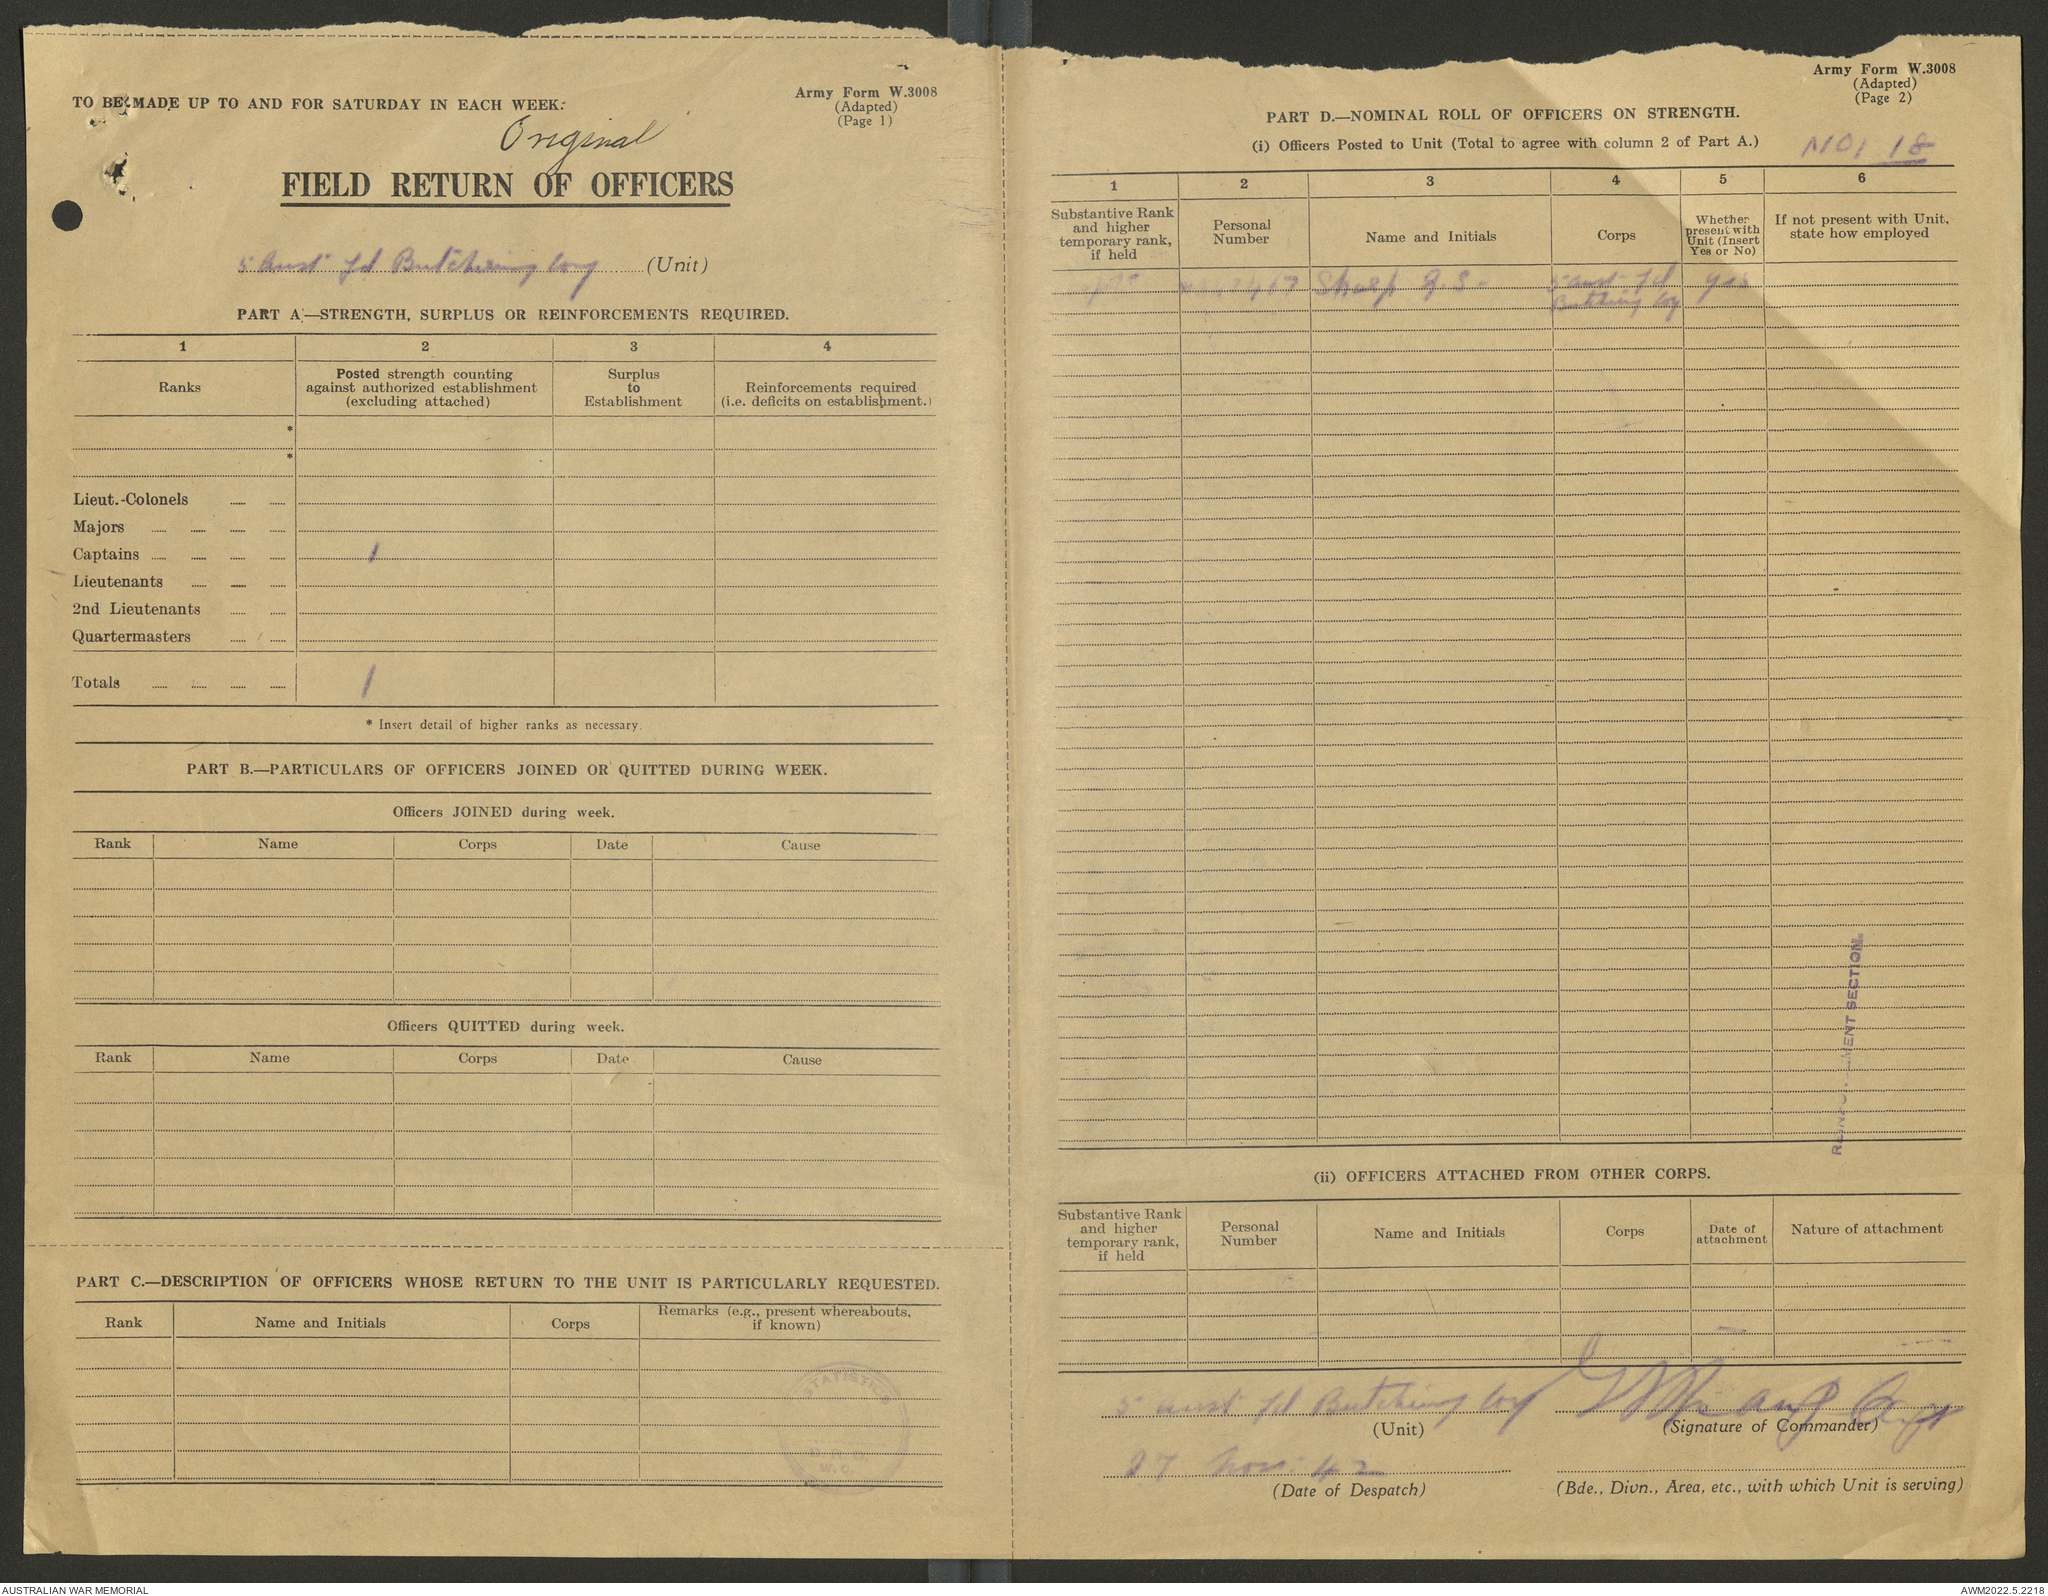 Army Form W.3008
(Adapted)
(Page 1)
TO BE MADE UP TO AND FOR SATURDAY IN EACH WEEK.
Original
FIELD RETURN OF OFFICERS
5 Aust Fd Butchering Coy (Unit)
PART A—STRENGTH, SURPLUS OR REINFORCEMENTS REQUIRED.
1 2 3 4
Ranks
Posted strength counting
against authorized establishment
(excluding attached)
Surplus
to
Establishment
Reinforcements required
(i.e. deficits on establishment.)
*
*
Lieut.-Colonels
Majors
Captains 1
Lieutenants
2nd Lieutenants
Quartermasters
Totals 1
* Insert detail of higher ranks as necessary.
PART B.—PARTICULARS OF OFFICERS JOINED OR QUITTED DURING WEEK.
Officers JOINED during week.
Rank Name Corps Date Cause
Officers QUITTED during week.
Rank Name Corps Date Cause
PART C.—DESCRIPTION OF OFFICERS WHOSE RETURN TO THE UNIT IS PARTICULARLY REQUESTED.
Rank Name and Initials Corps
Remarks (e.g., present whereabouts,
if known)
STATISTICS
Army Form W.3008
(Adapted)
(Page 2)
PART D.—NOMINAL ROLL OF OFFICERS ON STRENGTH.
(i) Officers Posted to Unit (Total to agree with column 2 of Part A.)
NO1 18
1 2 3 4 5 6
Substantive Rank
and higher
temporary rank,
if held
Personal
Number
Name and Initials
Corps
Whether
present with
Unit (Insert
Yes or No)
If not present with Unit,
state how employed
5 Aust Fd yes
Butching Coy
REINFORCEMENT SECTION.
(ii) OFFICERS ATTACHED FROM OTHER CORPS.
Substantive Rank
and higher
temporary rank,
if held
Personal
Number
Name and Initials
Corps
Date of
attachment
Nature of attachment
5 Aust Fd Butching Coy
(Unit)
(Signature of Commander)
27 Nov: 42
(Date of Despatch)
(Bde., Divn., Area, etc., with which Unit is serving)
AUSTRALIAN WAR MEMORIAL
AWM2022.5.2218